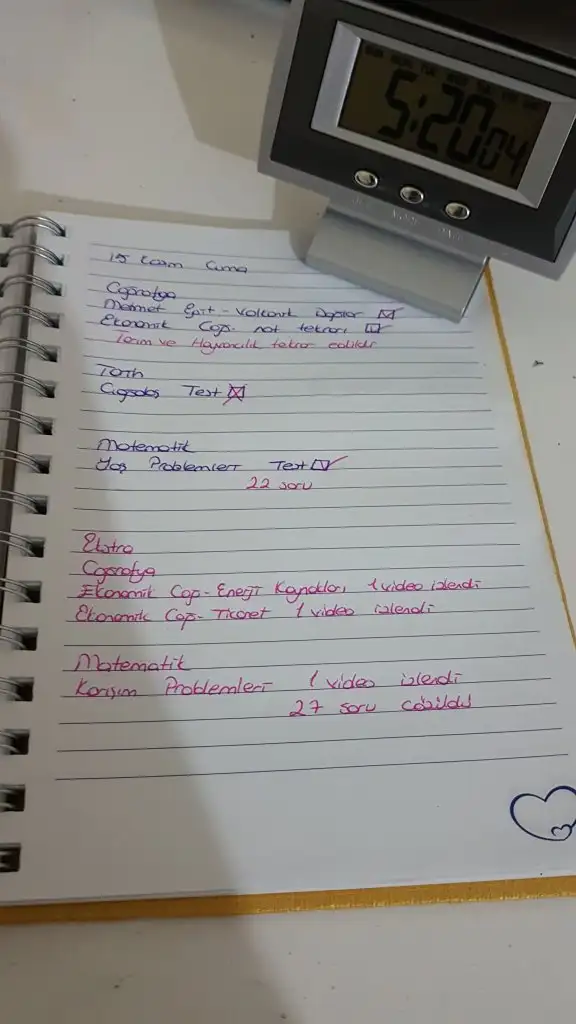 5:20 04
15 Ekim Cuma
Coğrafya
Mehmet Eğit - Volkanik Dağlar
Ekonomik Coğ. not tekrarı
Tarım ve Hayvancılık tekrar edildi
Tarih
Çağdaş Test
Matematik
Yaş Problemleri Test
22 soru
Ekstra
Coğrafya
Ekonomik Coğ - Enerji Kaynakları 1 video izlendi
Ekonomik Coğ - Ticaret 1 video izlendi
Matematik
Karışım Problemleri 1 video izlendi
27 soru çözüldü